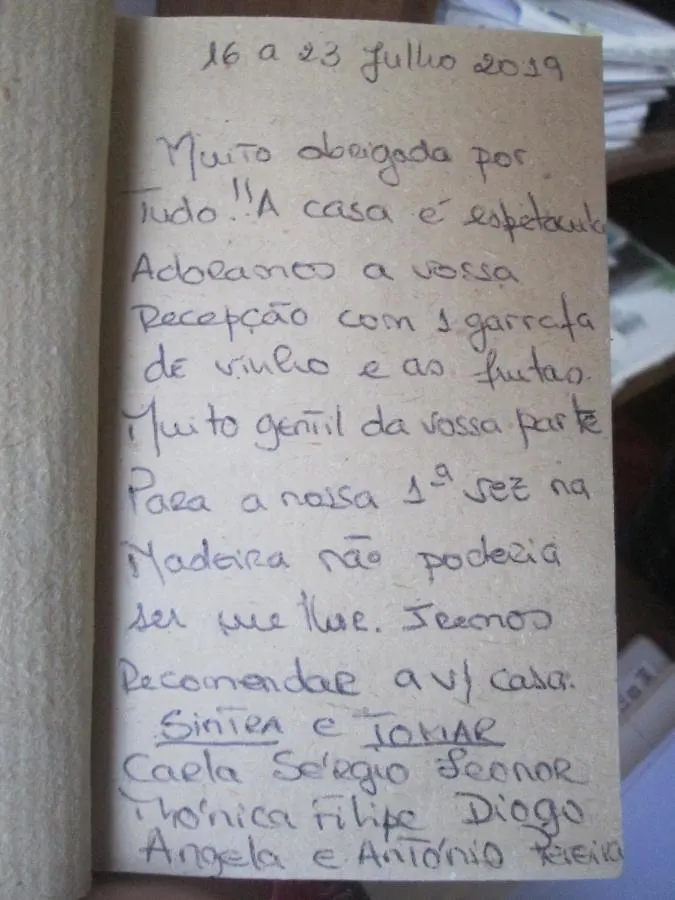 16 a 23 Julho 2019
Muito obrigada por
Tudo!! A casa é espetacula
Adoramos a vossa
Recepção com 1 garrafa
de vinho e as frutas.
Muito gentil da vossa parte
Para a nossa 1ª vez na
Madeira não poderia
ser melhor. Iremos
Recomendar a v/ casa.
SINTRA e TOMAR
Carla Sérgio Leonor
Mónica Filipe Diogo
Angela e António Pereira